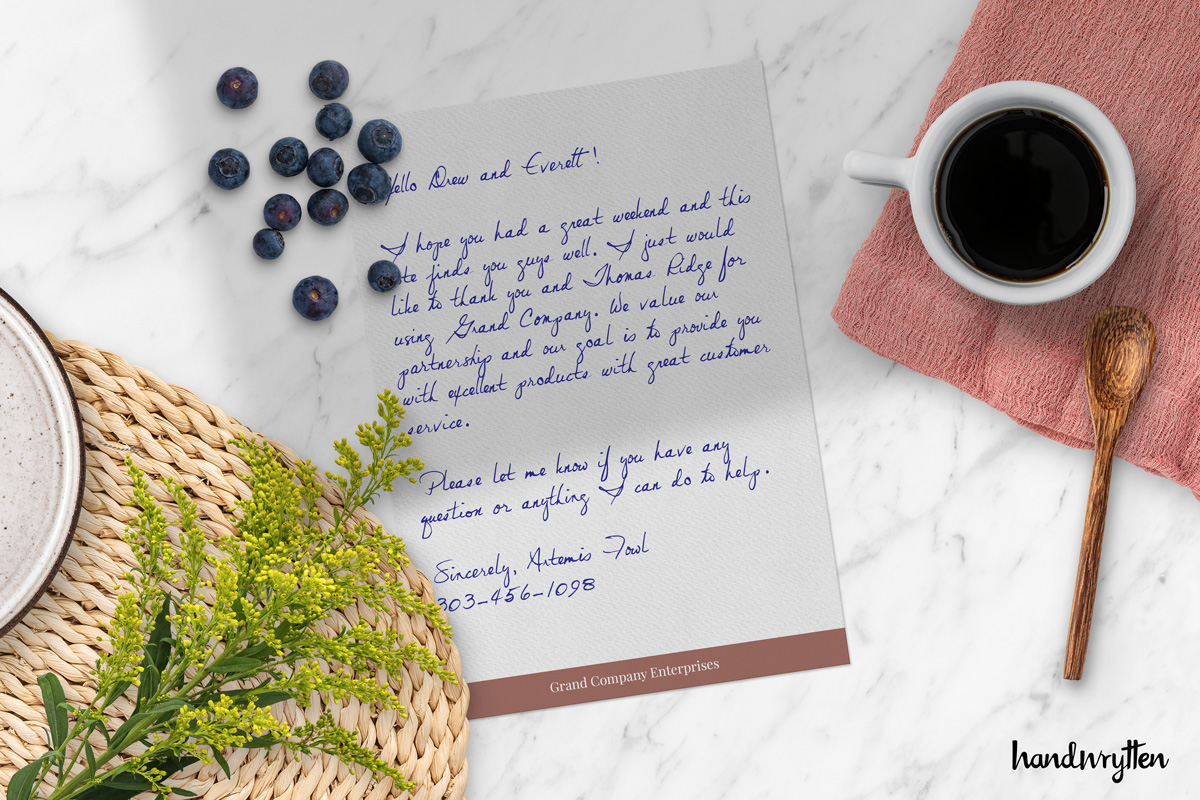 Hello Drew and Everett!
I hope you had a great weekend and this
note finds you guys well. I just would
like to thank you and Thomas Ridge for
using Grand Company. We value our
partnership and our goal is to provide you
with excellent products with great customer
service.
Please let me know if you have any
question or anything I can do to help.
Sincerely, Artemis Fowl
303-456-1098
Grand Company Enterprises
handwrytten